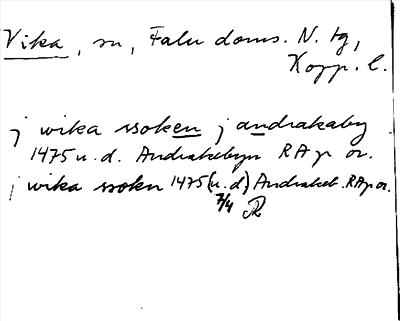 Vika, sn, Falu doms. N. tg,
Kopp. l.
j wika ssoken j andrakaby
1475 u. d. Andrakebyn RAp or.
j wika ssokn 1475 (u. d.) Andrakeb. RAp or.
7/4